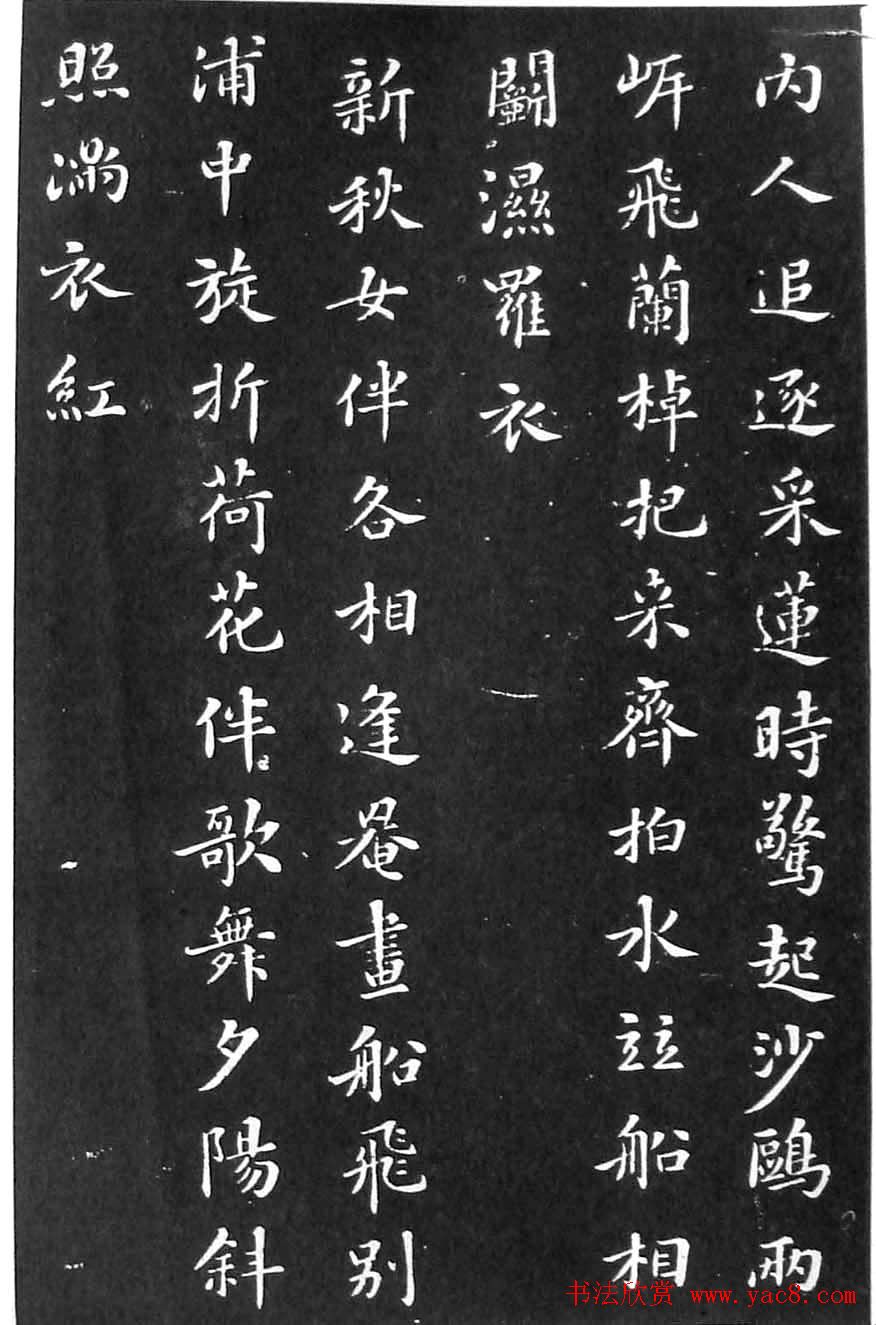 内人追逐采蓮時驚起沙鷗兩
岸飛蘭棹把来齊拍水竝船相
鬭濕羅衣
新秋女伴各相逢罨畫船飛别
浦中旋折荷花伴歌舞夕陽斜
照滿衣紅
书法欣赏 www.yac8.com